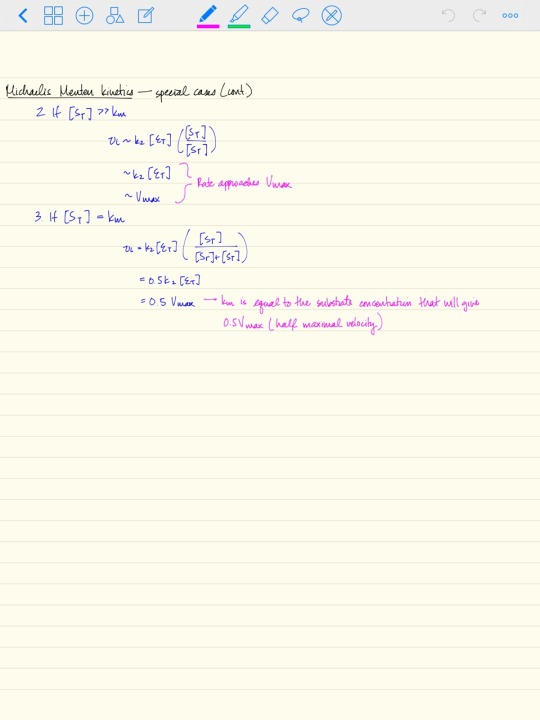 Michaelis Menten kinetics — special cases (cont)
2. If [S_T] >> km
v_i ~ k₂ [E_T] ([S_T] / [S_T])
~ k₂ [E_T]
Rate approaches Vmax
~ Vmax
3. If [S_T] = km
v_i = k₂ [E_T] ([S_T] / [S_T]+[S_T])
= 0.5 k₂ [E_T]
= 0.5 Vmax → km is equal to the substrate concentration that will give
0.5 Vmax (half maximal velocity)